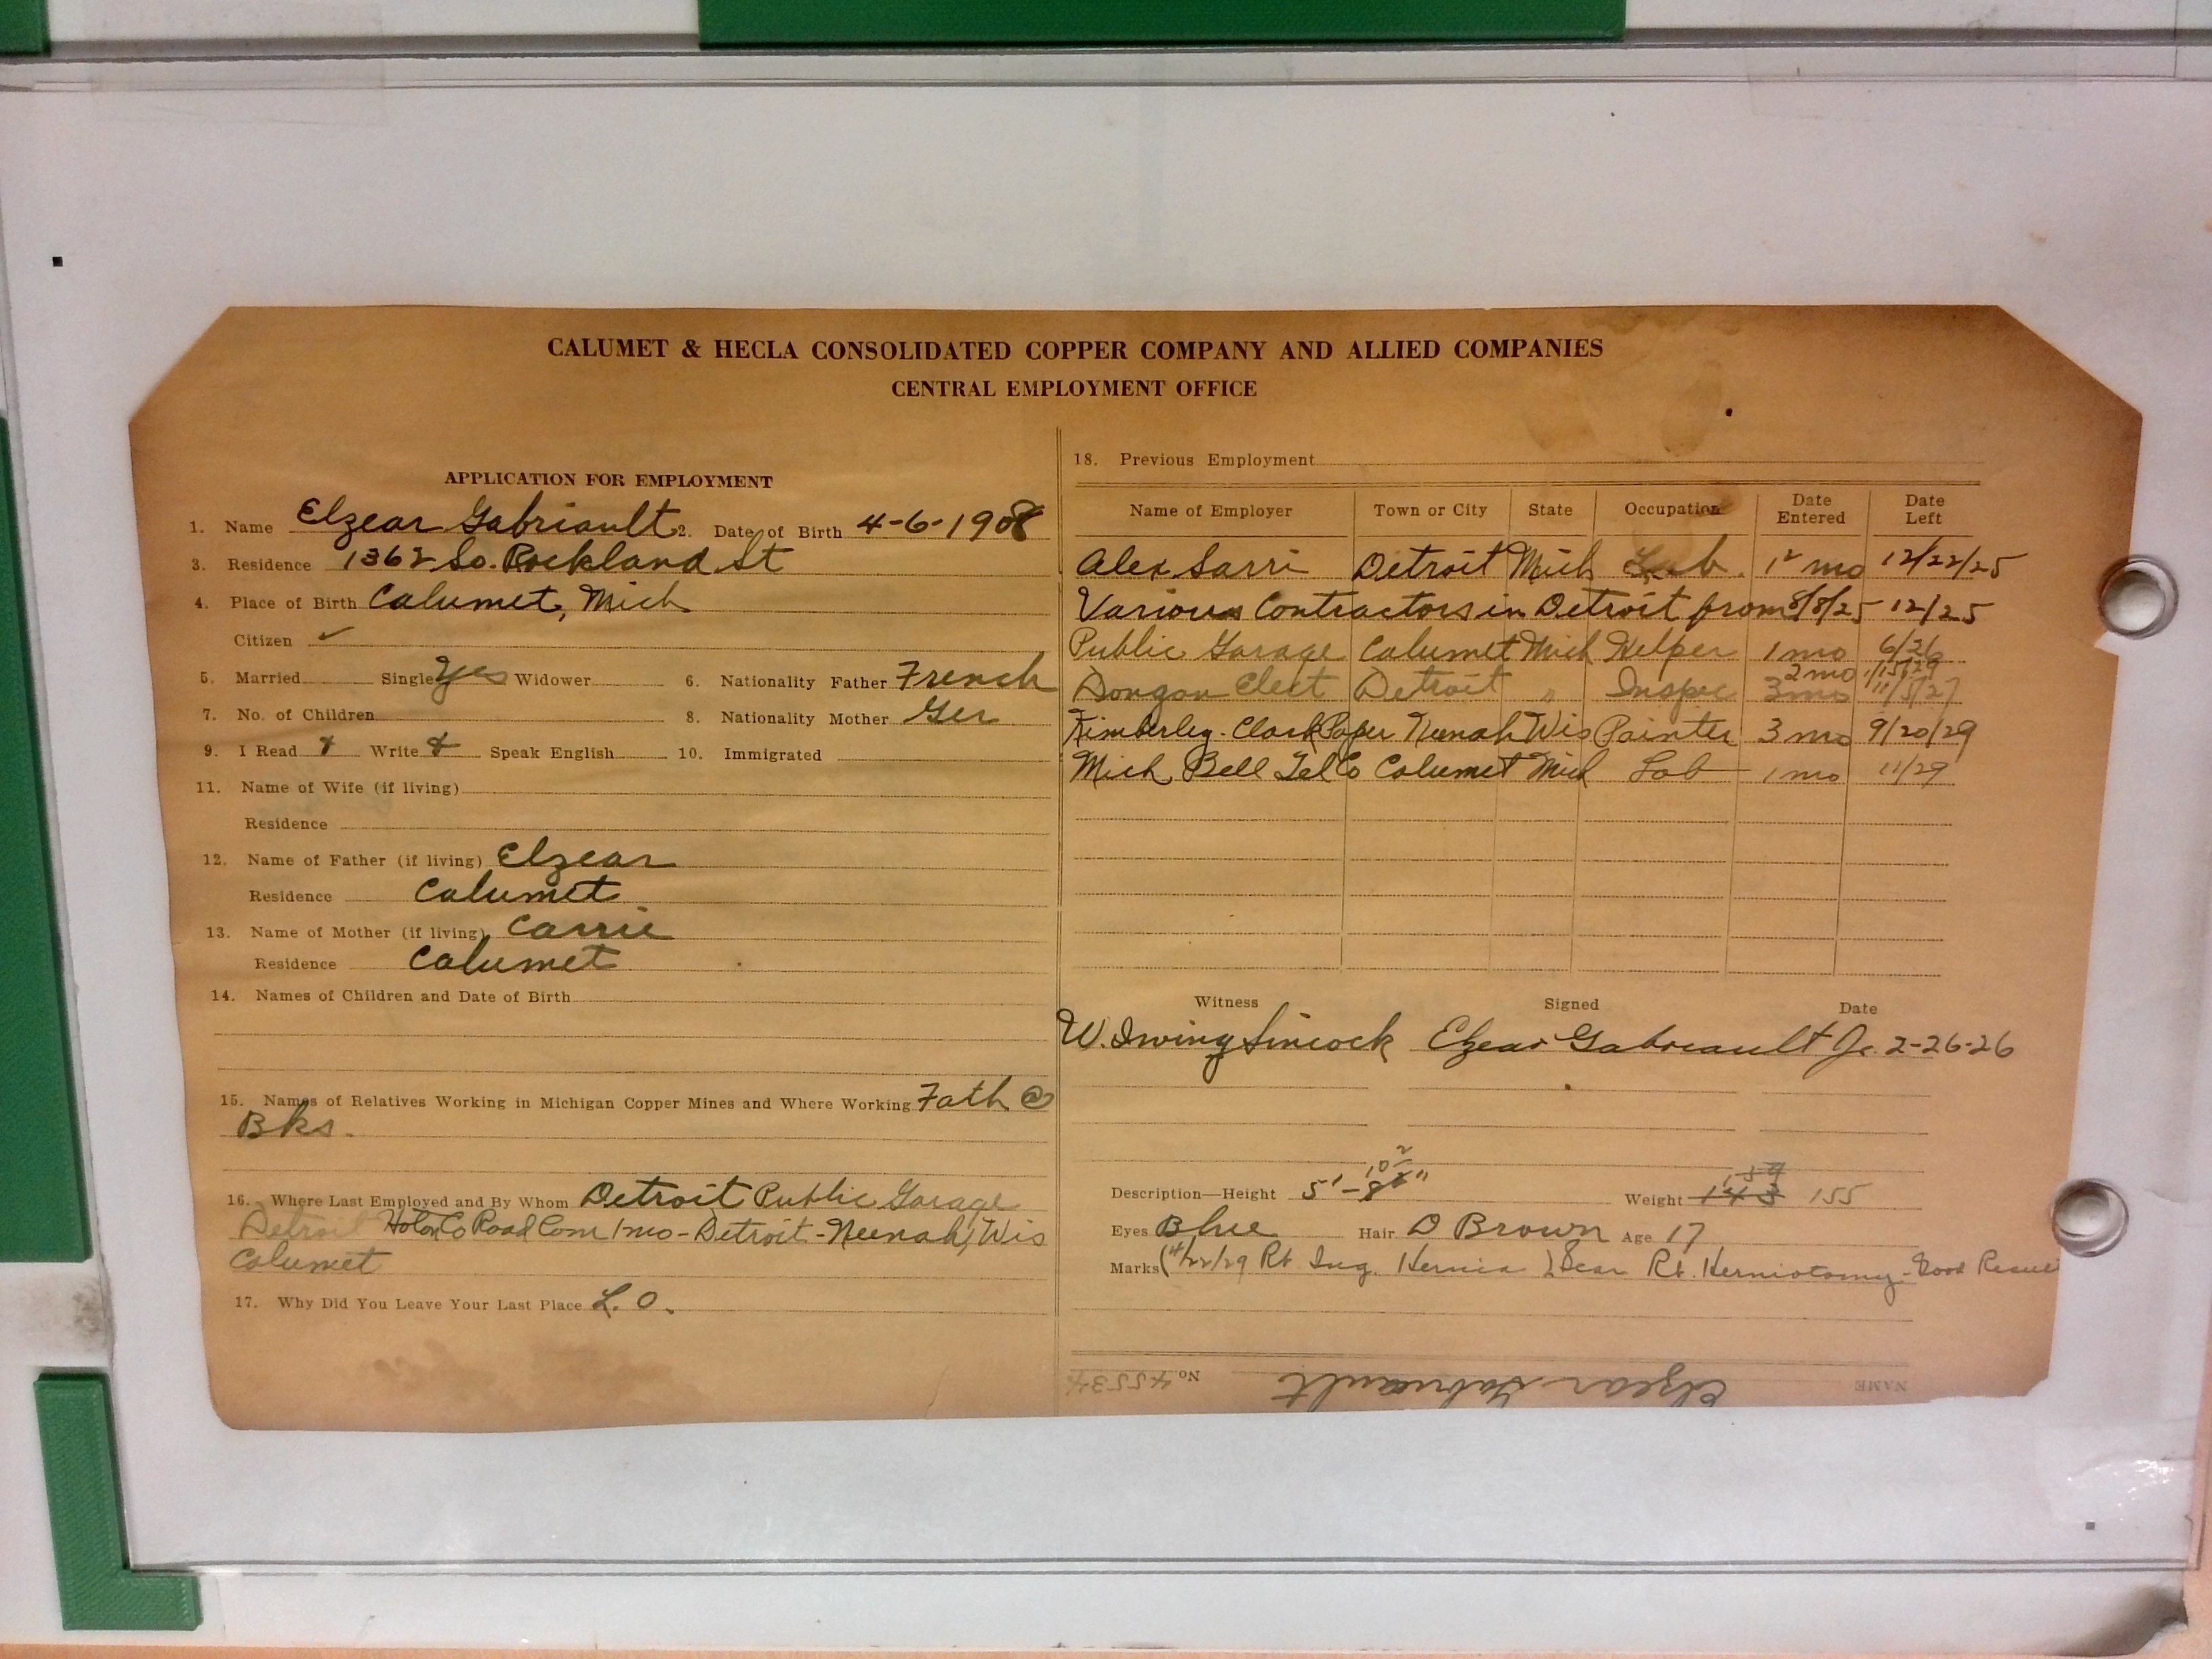 CALUMET & HECLA CONSOLIDATED COPPER COMPANY AND ALLIED COMPANIES
CENTRAL EMPLOYMENT OFFICE
APPLICATION FOR EMPLOYMENT
1. Name Elzear Gabriault 2. Date of Birth 4-6-1908
3. Residence 1362 So. Rockland St
4. Place of Birth Calumet, Mich
Citizen ✓
5. Married Single Yes Widower 6. Nationality Father French
7. No. of Children 8. Nationality Mother Ger
9. I Read Write Speak English 10. Immigrated
11. Name of Wife (if living)
Residence
12. Name of Father (if living) Elzear
Residence Calumet
13. Name of Mother (if living) Carrie
Residence Calumet
14. Names of Children and Date of Birth
15. Names of Relatives Working in Michigan Copper Mines and Where Working Fath @
Bks.
16. Where Last Employed and By Whom Detroit Public Garage
Detroit Co Road Com 1 mo - Detroit - Neenah, Wis
Calumet
17. Why Did You Leave Your Last Place L. O.
18. Previous Employment
Name of Employer Town or City State Occupation Date Entered Date Left
Alex Sarri Detroit Mich Lab. mo 12/22/25
Various Contractors in Detroit from 8/8/25 12/25
Public Garage Calumet Mich Helper 1 mo 6/26
2 mo
Dongan Elect Detroit " Inspec 3 mo
Kimberley-Clark Paper Neenah Wis Painter 3 mo 9/20/29
Mich Bell Tel Co Calumet Mich Lab 1 mo 11/29
Witness Signed Date
W. Irving Sincock Elzear Gabriault Jr. 2-26-26
Description—Height 5'- Weight 143 159 155
Eyes Blue Hair D Brown Age 17
Marks (4/22/29 Rt Ing. Hernia) Scar Rt. Herniotomy - Good
NAME Elzear Gabriault No. 45534